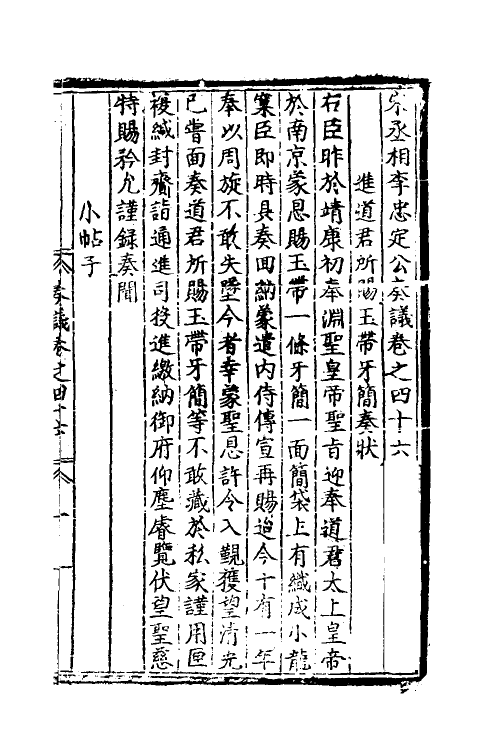 宋丞相李忠定公奏議卷之四十六
進道君所賜玉帶牙簡奏狀
右臣昨於靖康初奉淵聖皇帝聖旨迎奉道君太上皇帝
於南京蒙恩賜玉帶一條牙簡一面簡袋上有織成小龍
窠臣即時具奏回納蒙遣内侍傳宣再賜迨今十有一年
奉以周旋不敢失墜今者幸蒙聖恩許令入覲獲望清光
已嘗面奏道君所賜玉帶牙簡等不敢藏於私家謹用匣
複緘封齎詣通進司投進繳納御府仰塵睿覽伏望聖慈
特賜矜允謹録奏聞
小帖子
奏議卷之四十六
一